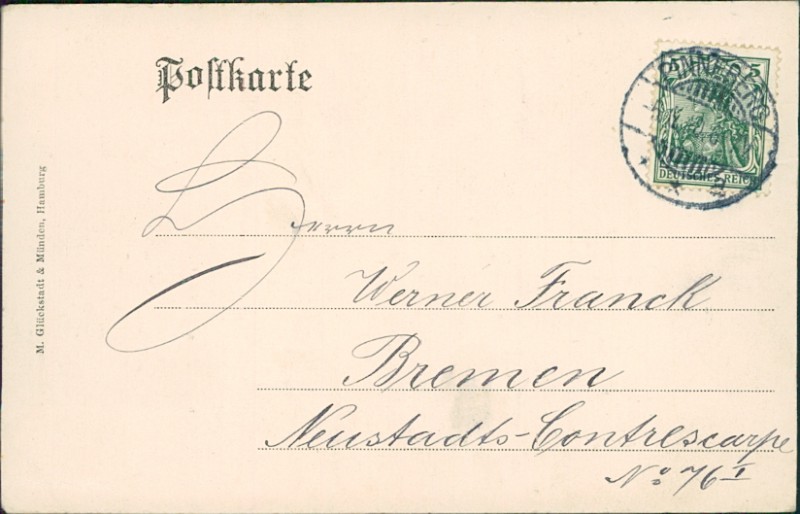 Postkarte
5 5
PINNEBERG
DEUTSCHES REICH
Herrn
Werner Franck
Bremen
Neustadts-Contrescarpe
No 76 I
M. Glückstadt & Münden, Hamburg